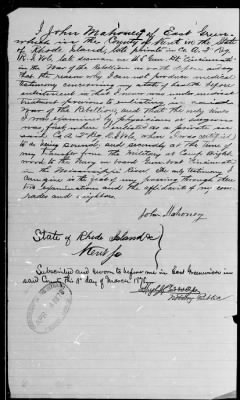 I John Mahoney of East Green-
wich in the County of Kent in the State
of Rhode Island, late private in Co. A 3d Reg.
R.I. Vols, late seaman on U.S. Gun Bt "Cincinnati"
in the War of the Rebellion and do aver and say
that the reason why I can not produce medical
testimony concerning my state of health before
enlistment is that I received no medical
treatment previous to enlisting in
of the Rebellion, and that the only times
I was examined by physicians or surgeons
was first when I enlisted as a private in
said Co. A 3d Reg R.I. Vols, when I was certified
to as being sound, and secondly at the time of
my transfer from the military at Camp
wood to the Navy on board Gun boat "Cincinnati"
in the Mississippi River. The only testimony I
can give is the fact of my passing through these
two examinations and the affidavits of my com-
rades and neighbors.
John Mahoney
State of Rhode Island &c
Kent Co
Subscribed and sworn to before me in East Greenwich in
said County this 8th day of March
Notary Public